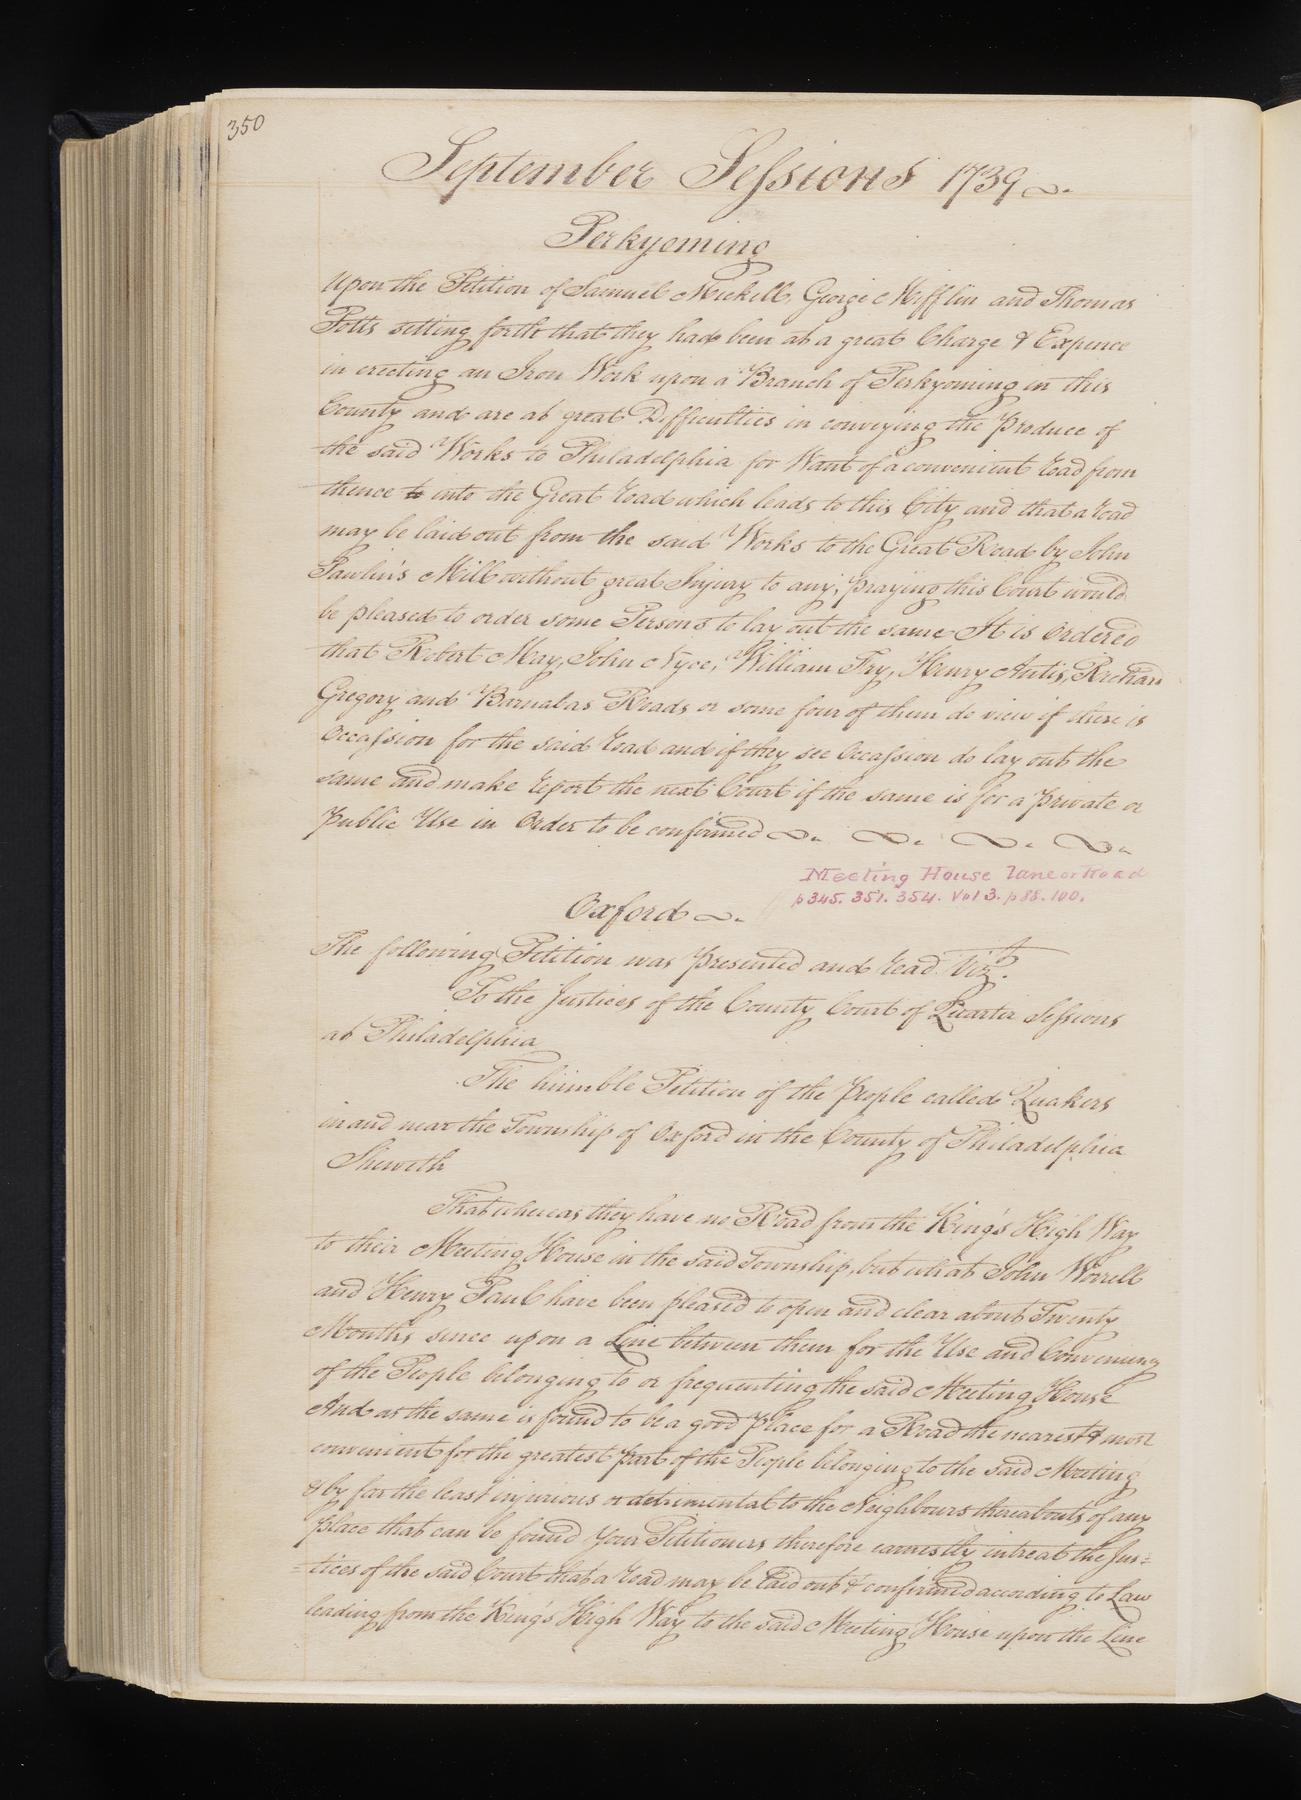 350
September Sessions 1739
Perkyoming
Upon the Petition of Samuel Mickell, George Mifflin and Thomas
Potts setting forth that they had been at a great Charge & Expence
in erecting an Iron Work upon a Branch of Perkyoming in this
County and are at great Difficulties in conveying the Produce of
the said Works to Philadelphia for Want of a convenient Road from
thence to into the Great Road which leads to this City and that a Road
may be laid out from the said Works to the Great Road by John
Pawlin's Mill without great Injury to any; praying this Court would
be pleased to order some Persons to lay out the same It is Ordered
that Robert May, John Nyce, William Fry, Henry Antis, Richard
Gregory and Barnabas Roads or some four of them do view if there is
Occassion for the said Road and if they see Occassion do lay out the
same and make Report the next Court if the same is for a private or
Public Use in Order to be confirmed
Meeting House Lane or Road
p 345. 351. 354. Vol 3. p 88. 100.
Oxford
The following Petition was presented and read Vizt.
To the Justices of the County Court of Quarter Sessions
at Philadelphia
The humble Petition of the People called Quakers
in and near the Township of Oxford in the County of Philadelphia
Sheweth
That whereas they have no Road from the King's High Way
to their Meeting House in the said Township, but what John Worrell
and Henry Paul have been pleased to open and clear about Twenty
Months since upon a Line between them for the Use and Conveniency
of the People belonging to or frequenting the said Meeting House
And as the same is found to be a good Place for a Road the nearest & most
convenient for the greatest part of the People belonging to the said Meeting
& by far the least injurious or detrimental to the Neighbours thereabouts of any
place that can be found Your Petitioners therefore earnestly intreat the Jus=
=tices of the said Court that a Road may be laid out & confirmed according to Law
leading from the King's High Way to the said Meeting House upon the Line